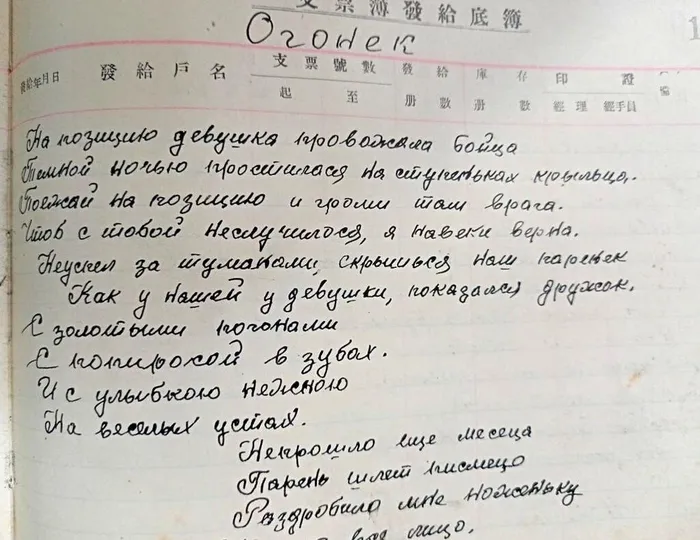 支票薄發給底簿
1
Огонек
發給年月日 發給戶名 支票號數 發給 庫存 印 證 備
起 至 册數 册數 經理 經手員
На позицию девушка провожала бойца
Темной ночью простилася на ступеньках крыльца.
Поежай на позицию и громи там врага.
Чтоб с тобой неслучилося, я навеки верна.
Неуспел за туманами, скрыться наш паренек
Как у нашей у девушки, показался дружок.
С золотыми погонами
С попиросой в зубах.
И с улыбкою нежною
На веселых устах.
Непрошло еще месеца
Парень шлет писмецо
Раздробило мне ноженьку
лицо.